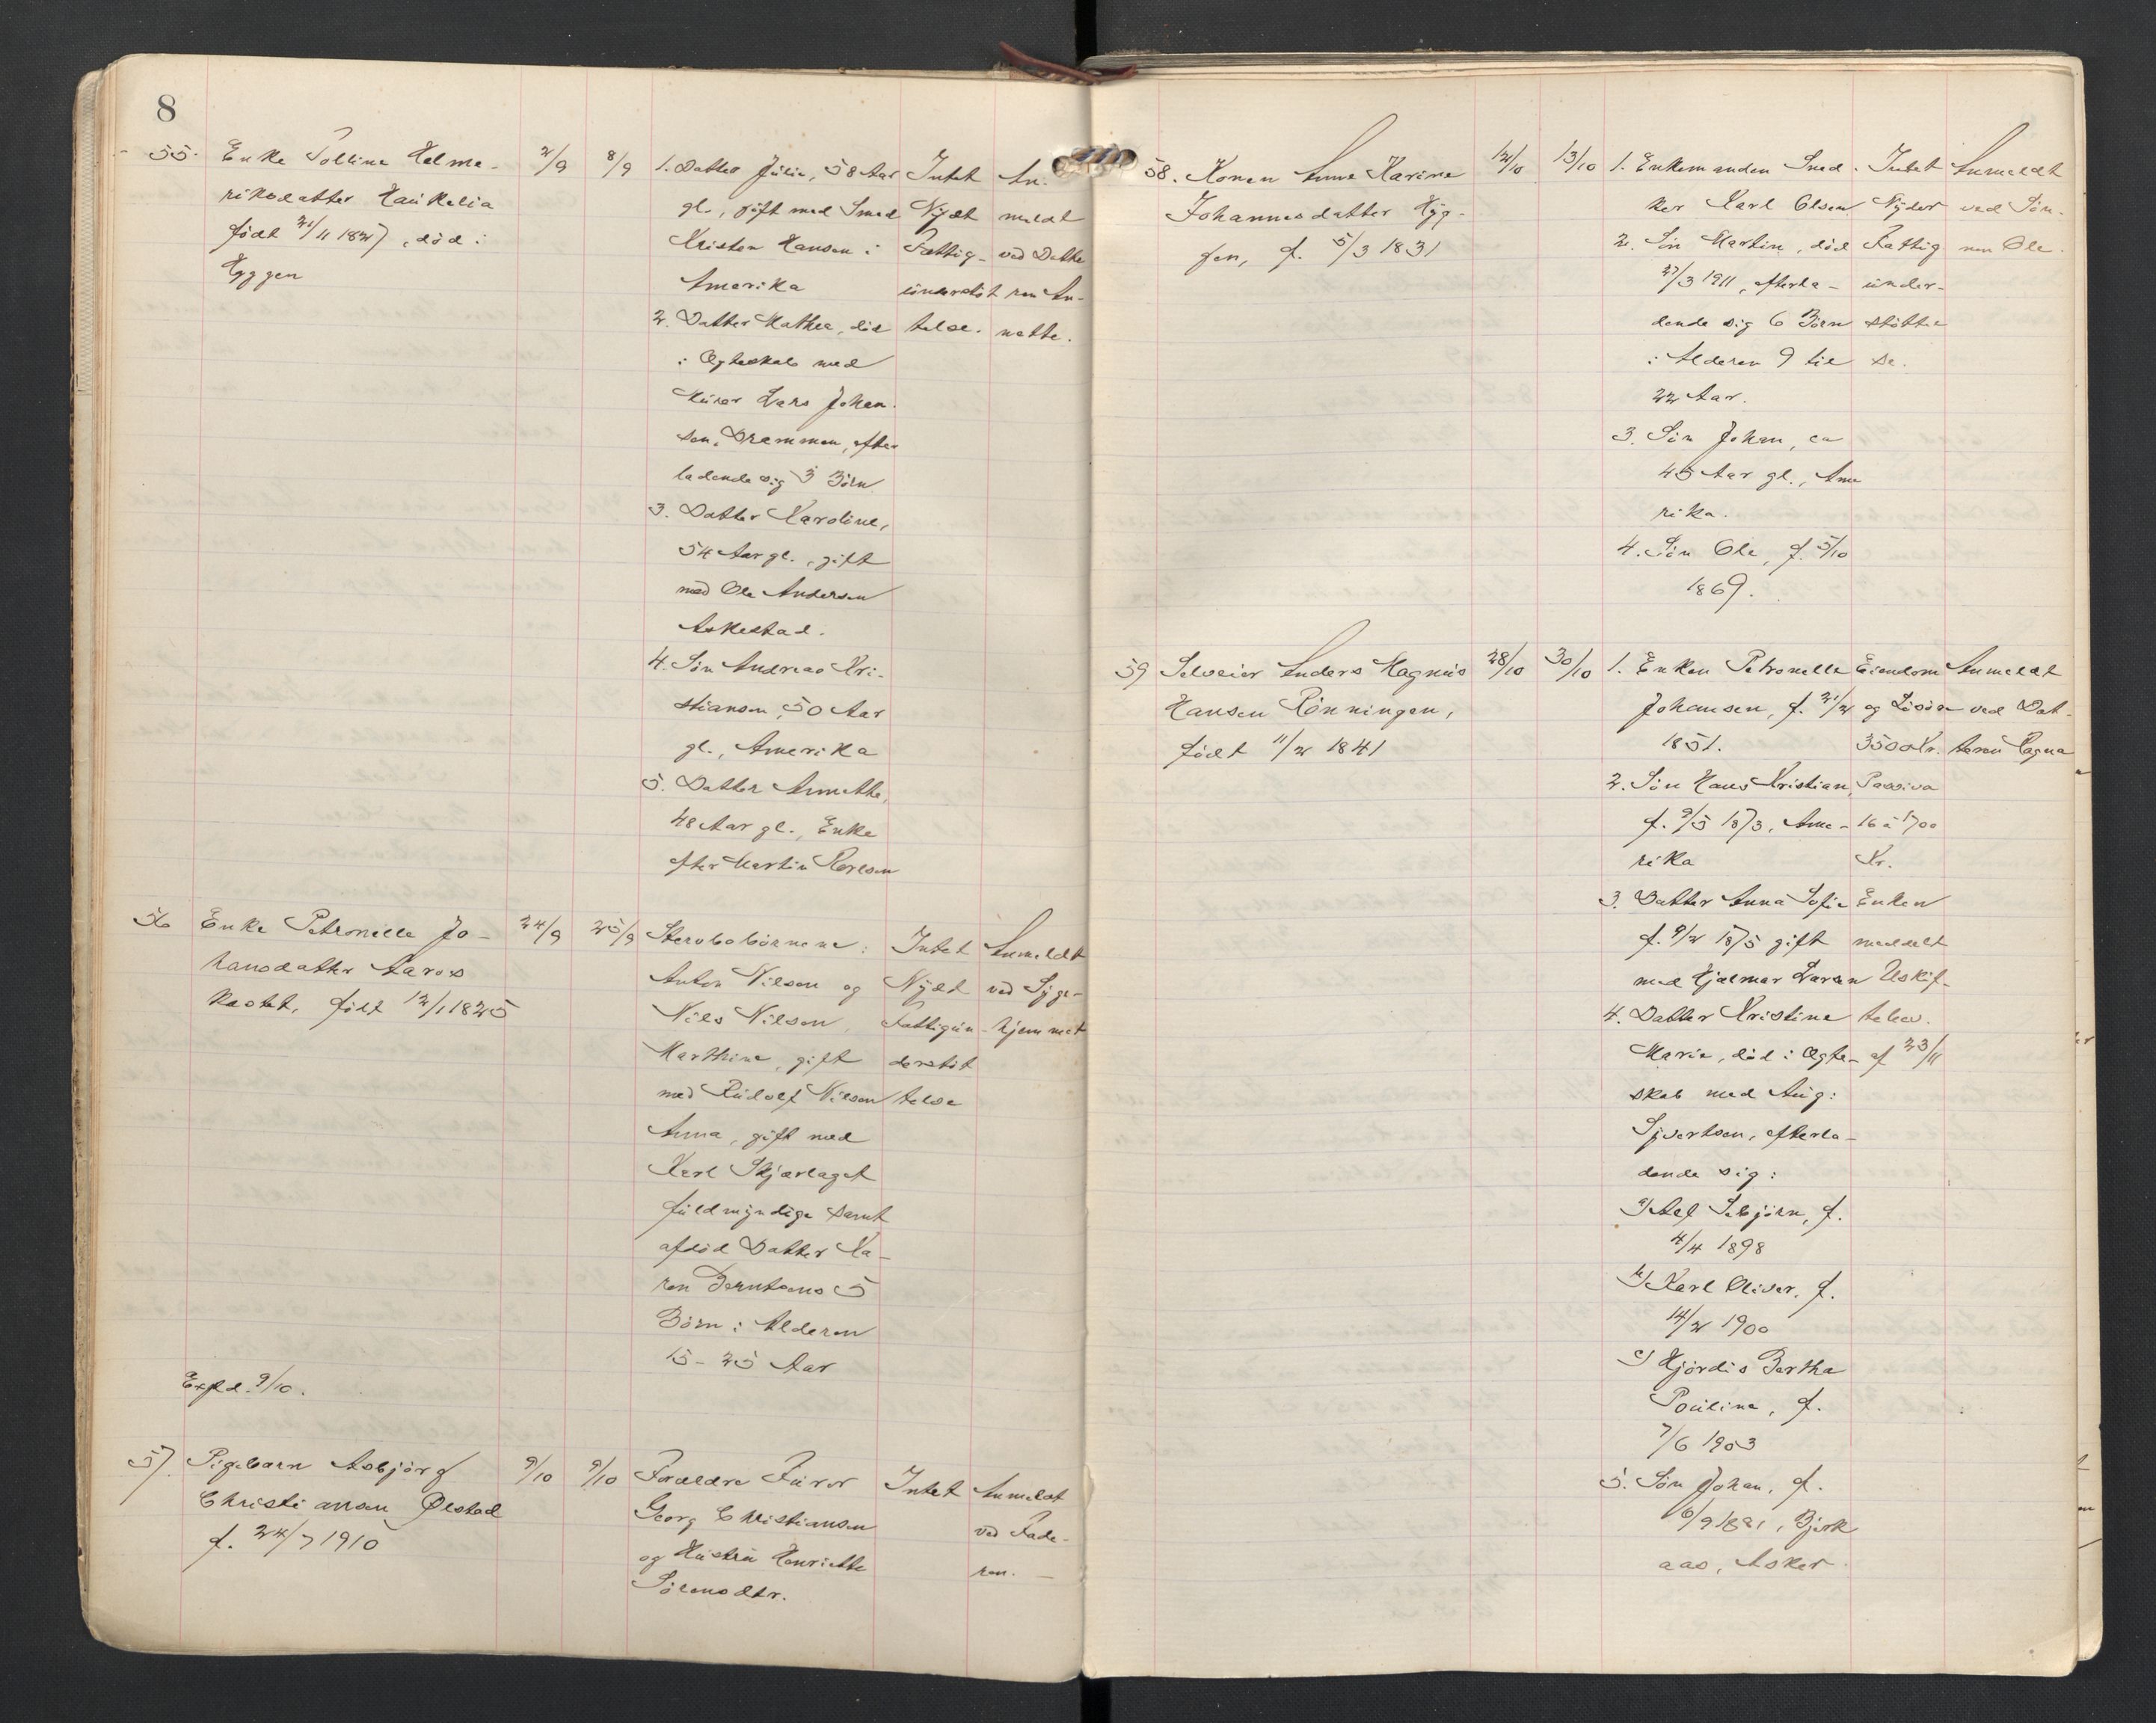 8
55. Enke Polline Helme-
riksdatter Haukelia
født 21/11 1827, død i
Hyggen
2/9
8/9
1. Datter Julie, 58 Aar
gl., gift med Smed
Kristen Hansen i
Amerika
2. Datter Mathea, død
i Ægteskab med
Murer Lars Johan-
sen, Drammen, efter
ladende sig 3 Börn
3. Datter Karoline,
54 Aar gl., gift
med Ole Andersen
Askestad.
4. Sön Andreas Kri-
stiansen, 50 Aar
gl., Amerika
5. Datter Annette,
48 Aar gl., Enke
efter Martin Karlsen
Intet
Nydt
Fattig-
understöt
telse.
An-
meldt
ved Datte
ren An-
nette.
56 Enke Petronelle Jo-
hansdatter Aaros
Kastet, født 12/1 1825
24/9
25/9
Stervbobörnene:
Anton Nilsen og
Nils Nilsen,
Marthine, gift
med Rudolf Nilsen
Anna, gift med
Karl Skjærlaget
fuldmyndige samt
afdöd Datter Ka-
ren Berntsens 5
Börn i Alderen
15 - 25 Aar
Intet
Nydt
Fattigun-
derstöt
telse
Anmeldt
ved Syge-
hjemmet
Expd. 9/10.
57. Pigebarn Asbjörg
Christiansen Ølstad
f. 24/7 1910
9/10
9/10
Forældre Furer
Georg Christiansen
og Hustru Henriette
Sörensdtr.
Intet
Anmeldt
ved Fade-
ren. —
58. Konen Anne Karine
Johannesdatter Hyg-
gen, f. 5/3 1831
12/10
13/10
1. Enkemanden Sned-
ker Karl Olsen
2. Sön Martin, död
27/3 1911, efterla-
dende sig 6 Börn
i Alderen 9 til
22 Aar.
3. Sön Johan, ca
45 Aar gl., Ame
rika.
4. Sön Ole, f. 5/10
1869.
Intet
Nyder
Fattig
under-
stöttel
se.
Anmeldt
ved Sön-
nen Ole.
59 Selveier Anders Magnus
Hansen Rönningen,
født 11/2 1841
28/10
30/10
1. Enken Petronelle
Johansen, f. 21/2
1851.
2. Sön Hans Kristian,
f. 9/5 1873, Ame-
rika
3. Datter Anna Sofie
f. 9/2 1875 gift
med Hjalmar Larsen
4. Datter Kristine
Marie, död i Ægte-
skab med Aug:
Syvertsen, efterla-
dende sig:
a) Asbjörn, f.
4/4 1898
b) Karl Oliver, f.
14/2 1900
c) Hjördis Bertha
Pouline, f.
7/6 1903
5. Sön Johan, f.
6/9 1881, Bjerk
aas, Asker.
Eiendom
og Lösöre
3500 Kr.
Passiva
16 à 1700
Kr.
Enken
meddelt
Uskif-
telev.
af 23/11
Anmeldt
ved Dat-
teren Ragna